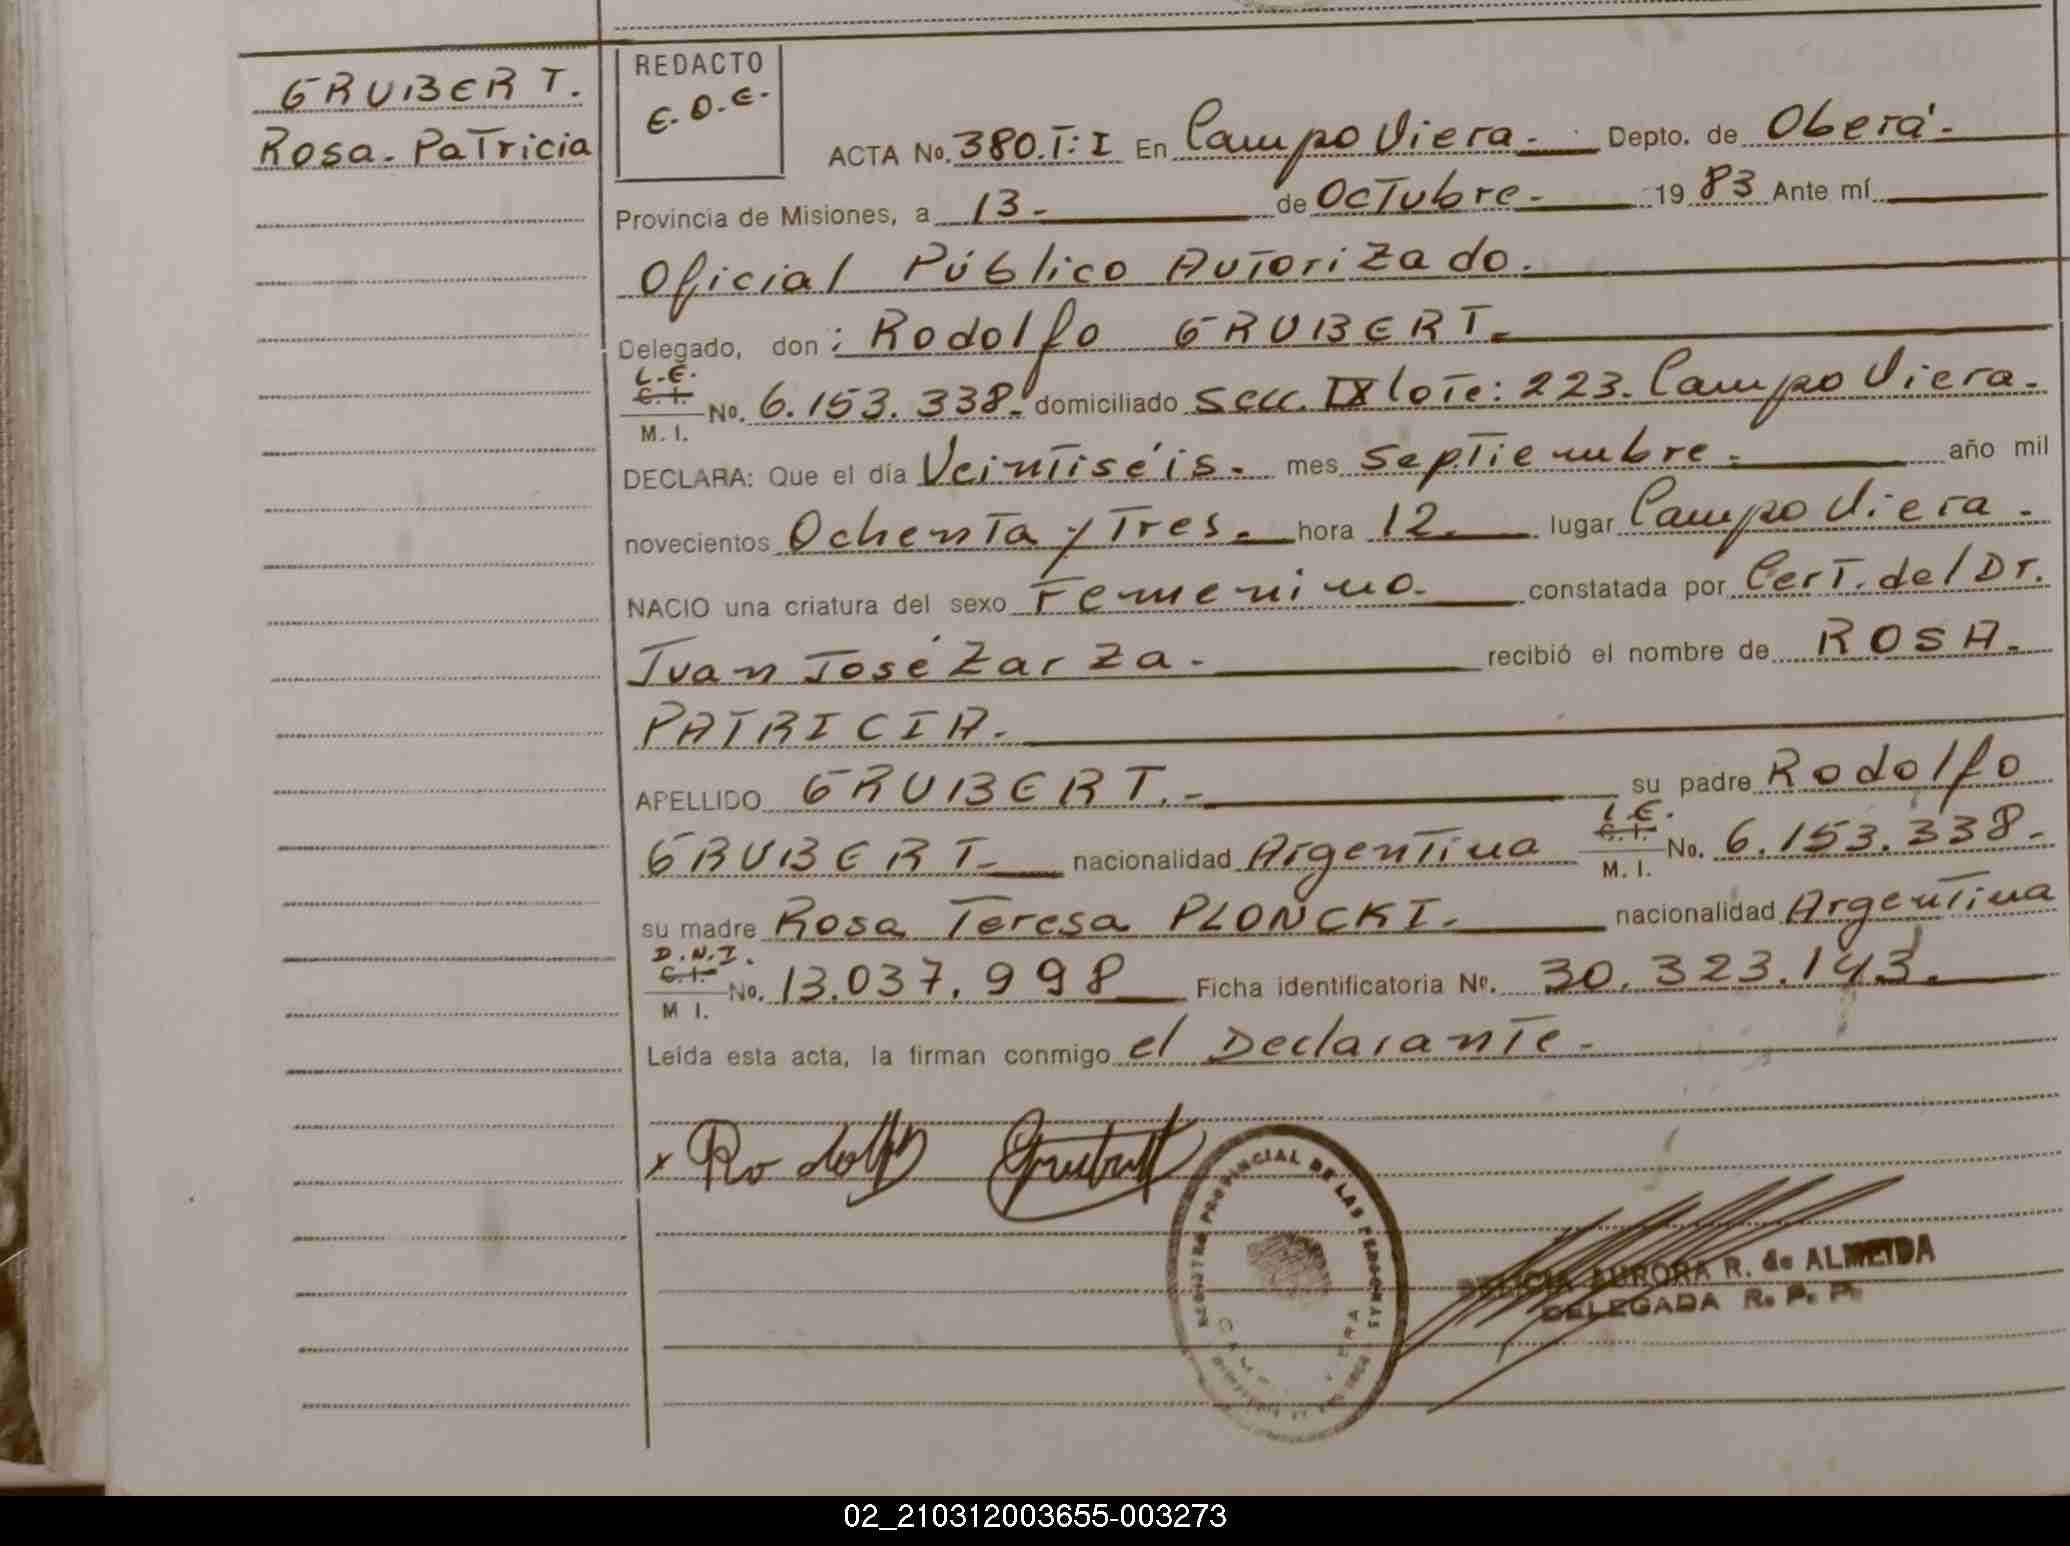 GRUBERT.
Rosa. Patricia
REDACTO
E.O.E.
ACTA No. 380.T:I En Campo Viera. Depto. de Oberá.
Provincia de Misiones, a 13. de Octubre. 19 83 Ante mí
Oficial Público Autorizado.
Delegado, don: Rodolfo GRUBERT.
L.E.
C.I.
M. I.
No. 6.153.338. domiciliado Secc. IX lote: 223. Campo Viera.
DECLARA: Que el día Veintiséis. mes Septiembre. año mil
novecientos Ochenta y Tres. hora 12. lugar Campo Viera.
NACIO una criatura del sexo Femenino. constatada por Cert. del Dr.
Juan José Zarza. recibió el nombre de ROSA.
PATRICIA.
APELLIDO GRUBERT. su padre Rodolfo
GRUBERT. nacionalidad Argentina L.E. C.I. M. I. No. 6.153.338.
su madre Rosa Teresa PLONCKI. nacionalidad Argentina
D.N.I.
C.I.
M I.
No. 13.037.998 Ficha identificatoria Nº. 30.323.143.
Leída esta acta, la firman conmigo el Declarante.
x Rodolfo Grubert
REGISTRO PROVINCIAL DE LAS PERSONAS
DELICIA AURORA R. de ALMEIDA
DELEGADA R. P. P.
02_210312003655-003273